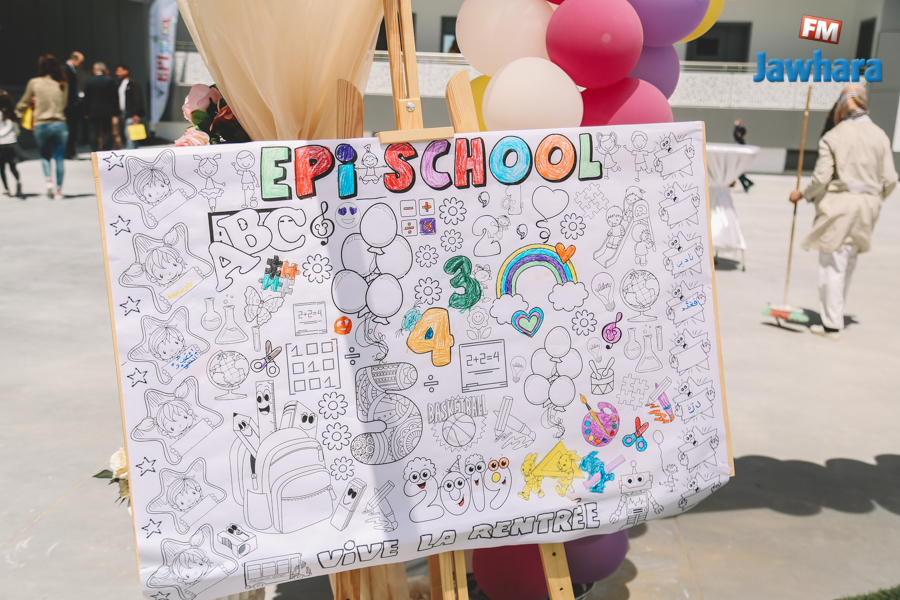 FM
Jawhara
EPI SCHOOL
ABC
A
3
2+2=4
4
1 0 1
0 1 0
1 0 1
÷
2+2=4
÷
5
BASKETBALL
2019
VIVE LA RENTRÉE